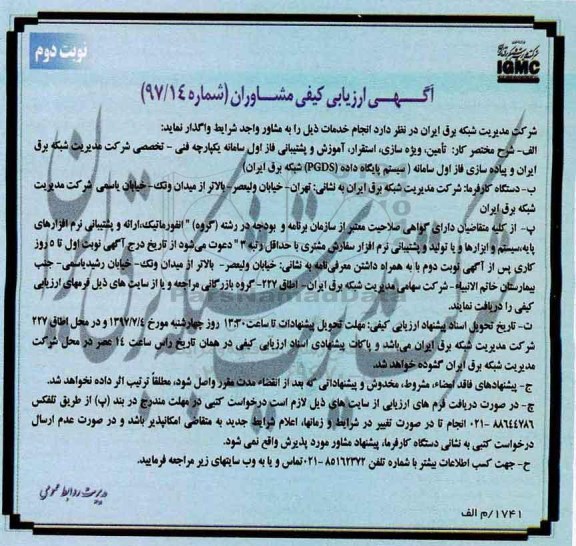 نوبت دوم
IGMC
آگهی ارزیابی کیفی مشاوران (شماره ۹۷/۱۴)
شرکت مدیریت شبکه برق ایران در نظر دارد انجام خدمات ذیل را به مشاور واجد شرایط واگذار نماید:
الف- شرح مختصر کار: تأمین، ویژه سازی، استقرار، آموزش و پشتیبانی فاز اول سامانه یکپارچه فنی - تخصصی شرکت مدیریت شبکه برق
ایران و پیاده سازی فاز اول سامانه ( سیستم پایگاه داده (PGDS) شبکه برق ایران)
ب- دستگاه کارفرما: شرکت مدیریت شبکه برق ایران به نشانی: تهران- خیابان ولیعصر- بالاتر از میدان ونک- خیابان یاسمی شرکت مدیریت
شبکه برق ایران
پ- از کلیه متقاضیان دارای گواهی صلاحیت معتبر از سازمان برنامه و بودجه در رشته (گروه) " انفورماتیک،ارائه و پشتیبانی نرم افزارهای
پایه،سیستم و ابزارها و یا تولید و پشتیبانی نرم افزار سفارش مشتری با حداقل رتبه ۳ " دعوت می‌شود از تاریخ درج آگهی نوبت اول تا ۵ روز
کاری پس از آگهی نوبت دوم با به همراه داشتن معرفی‌نامه به نشانی: خیابان ولیعصر- بالاتر از میدان ونک- خیابان رشیدیاسمی- جنب
بیمارستان خاتم الانبیاء- شرکت سهامی مدیریت شبکه برق ایران- اطاق ۲۲۷- گروه بازرگانی مراجعه و یا از سایت های ذیل فرمهای ارزیابی
کیفی را دریافت نمایند.
ت- تاریخ تحویل اسناد پیشنهاد ارزیابی کیفی: مهلت تحویل پیشنهادات تا ساعت ۱۳:۳۰ روز چهارشنبه مورخ ۱۳۹۷/۷/۴ و در محل اطاق ۲۲۷
شرکت مدیریت شبکه برق ایران می‌باشد و پاکات پیشنهادی اسناد ارزیابی کیفی در همان تاریخ راس ساعت ۱۴ عصر در محل شرکت
مدیریت شبکه برق ایران گشوده خواهد شد.
ج- پیشنهادهای فاقد امضاء، مشروط، مخدوش و پیشنهاداتی که بعد از انقضاء مدت مقرر واصل شود، مطلقاً ترتیب اثر داده نخواهد شد.
چ- در صورت دریافت فرم های ارزیابی از سایت های ذیل لازم است درخواست کتبی در مهلت مندرج در بند (پ) از طریق تلفکس
۸۸۶۴۴۷۸۶ -۰۲۱ انجام تا در صورت تغییر در شرایط و زمانها، اعلام شرایط جدید به متقاضی امکانپذیر باشد و در صورت عدم ارسال
درخواست کتبی به نشانی دستگاه کارفرما، پیشنهاد مشاور مورد پذیرش واقع نمی شود.
ح- جهت کسب اطلاعات بیشتر با شماره تلفن ۸۵۱۶۲۳۷۲ -۰۲۱ تماس و یا به وب سایتهای زیر مراجعه فرمایید.
مدیریت روابط عمومی
۱۷۴۱/م الف